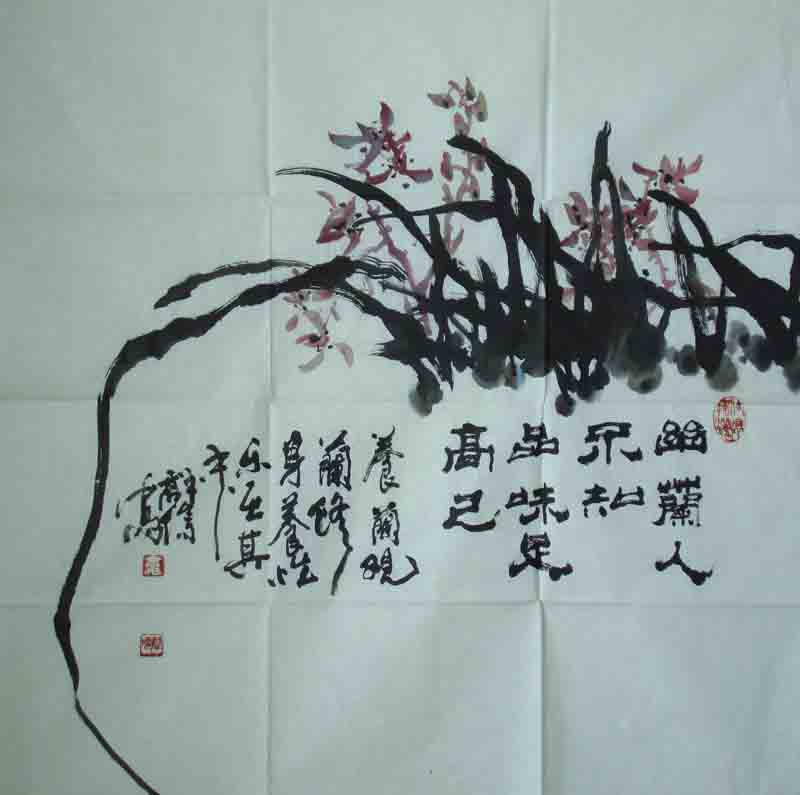 幽蘭人
不知
品味足
高己
養蘭觀
蘭修
身養性
乐在其
中
寫